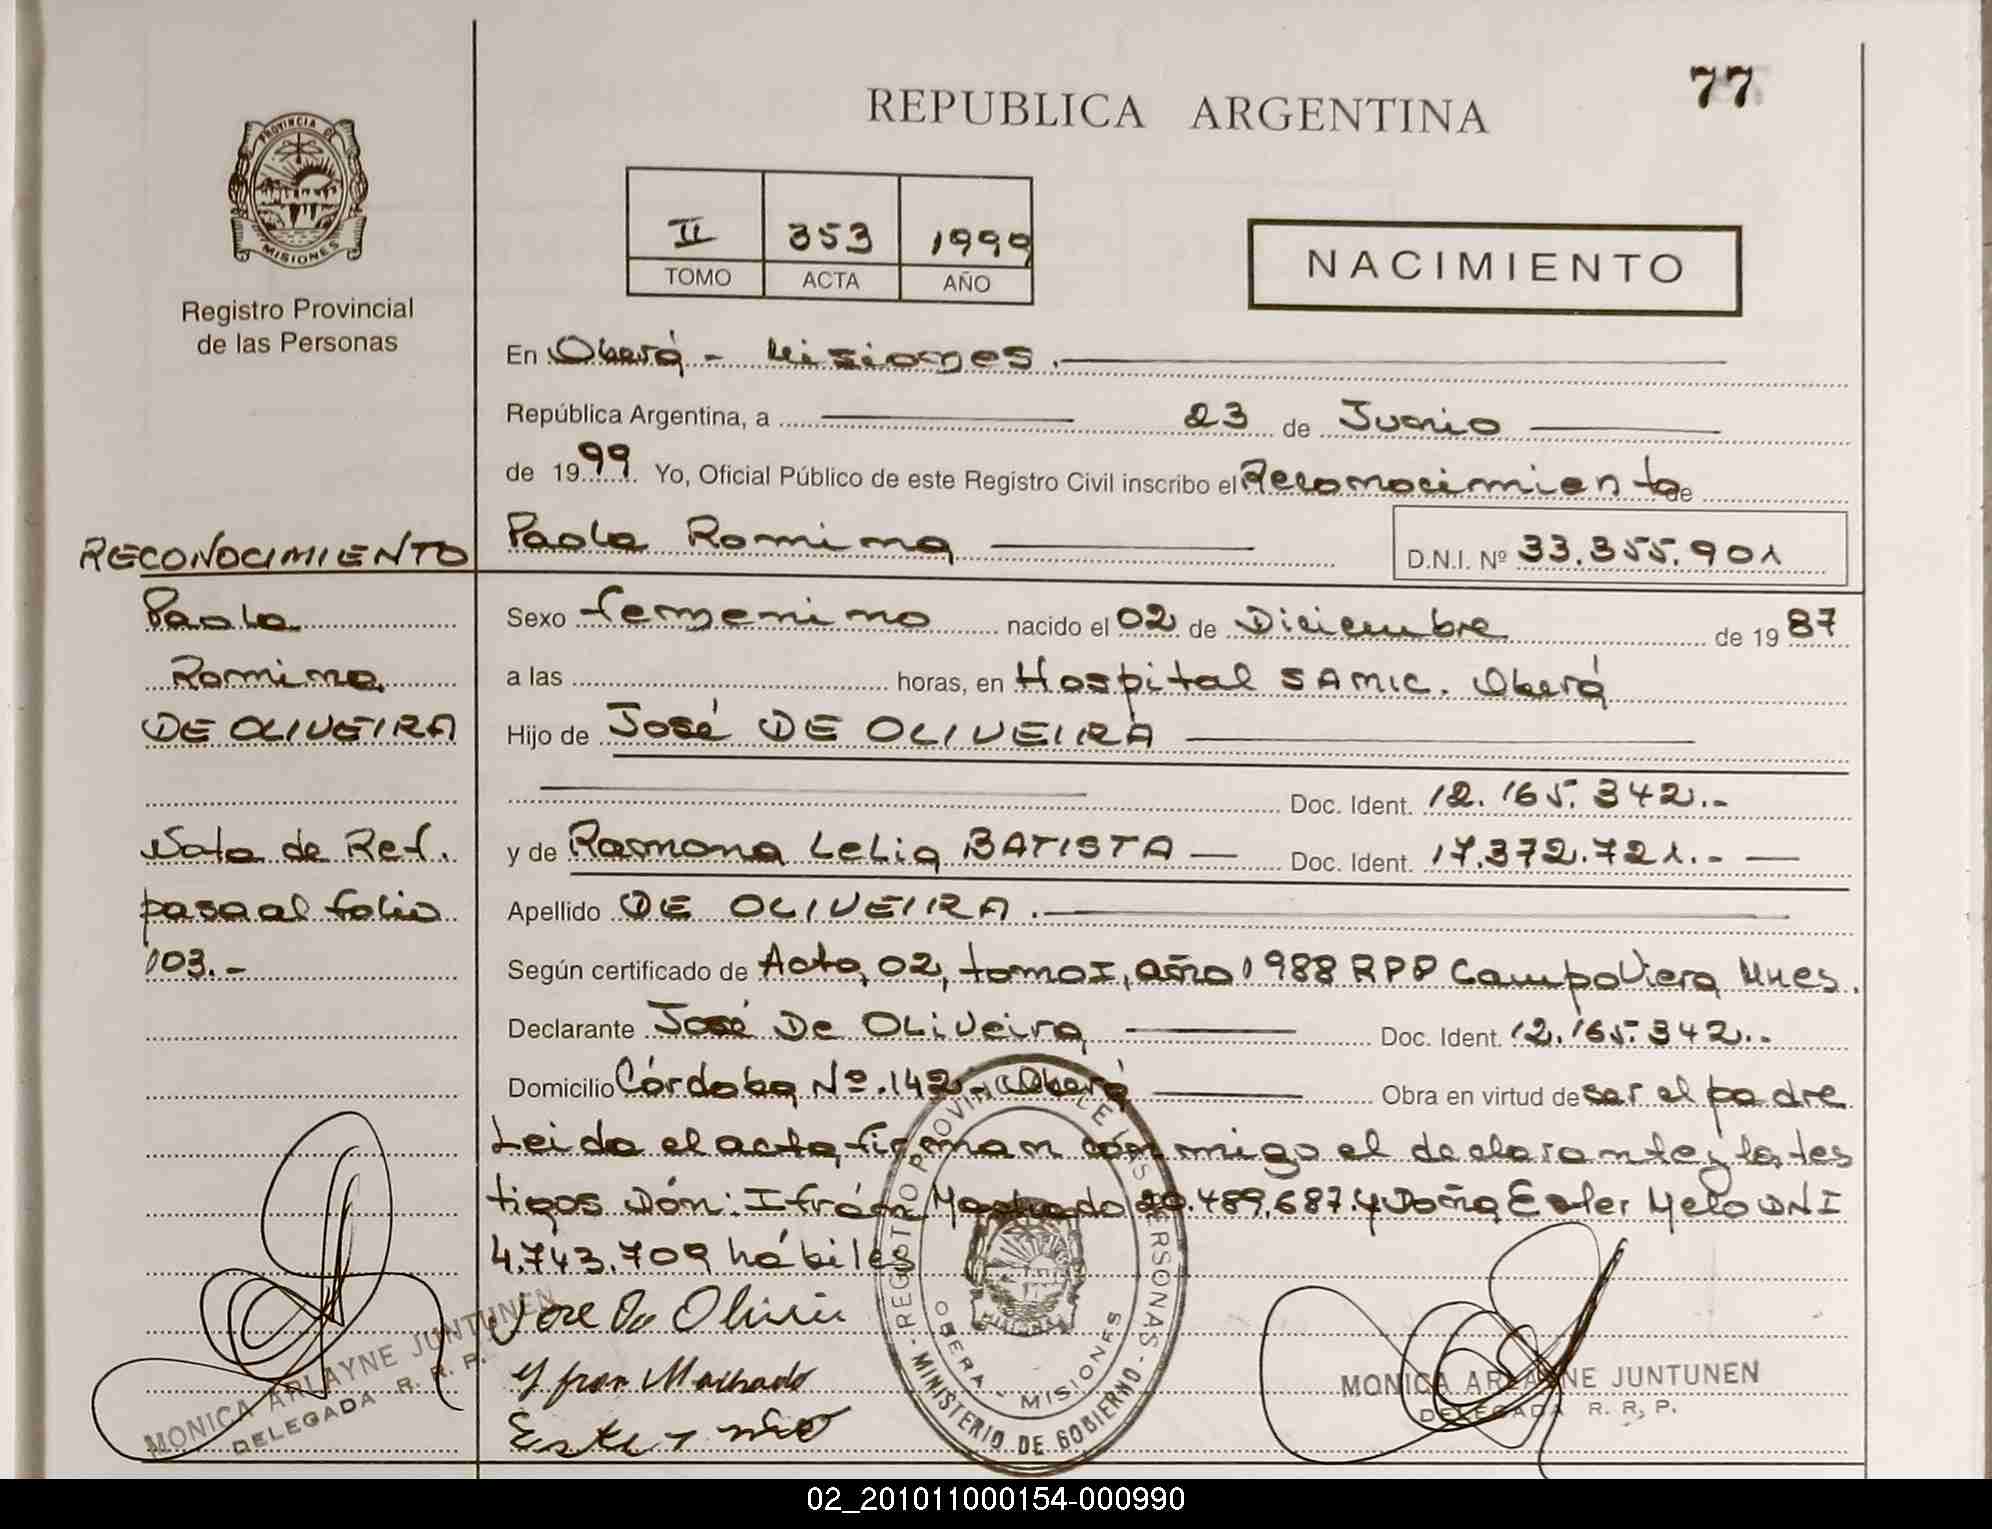 77
REPUBLICA ARGENTINA
PROVINCIA DE
MISIONES
Registro Provincial
de las Personas
II 353 1999
TOMO ACTA AÑO
NACIMIENTO
En Oberá - Misiones.
República Argentina, a 23 de Junio
de 1999 Yo, Oficial Público de este Registro Civil inscribo el Reconocimiento de
Paola Romina D.N.I. Nº 33.355.901
RECONOCIMIENTO
Paola
Romina
DE OLIVEIRA
Nota de Ref.
pasa al folio
103.-
Sexo femenino nacido el 02 de Diciembre de 1987
a las horas, en Hospital SAMIC. Oberá
Hijo de José DE OLIVEIRA
Doc. Ident. 12.165.342.-
y de Ramona Lelia BATISTA Doc. Ident. 17.372.721.-
Apellido DE OLIVEIRA.
Según certificado de Acta, 02, tomo I, año 1988 RPP Campo Viera Mnes.
Declarante José De Oliveira Doc. Ident. 12.165.342.-
Domicilio Córdoba Nº 142 - Oberá Obra en virtud de ser el padre
Leida el acta, firman conmigo el declarante y los tes
tigos Dón: Ifrán Machado 20.489.687. y Doña Ester Melo DNI
4.743.709 hábiles
Jose De Olivie
Yfran Machado
Ester
REGISTRO PROVINCIAL DE LAS PERSONAS - MINISTERIO DE GOBIERNO -
OBERA - MISIONES
MISIONES
MONICA ARLAYNE JUNTUNEN
DELEGADA R. R. P.
MONICA ARLAYNE JUNTUNEN
DELEGADA R. R. P.
02_201011000154-000990